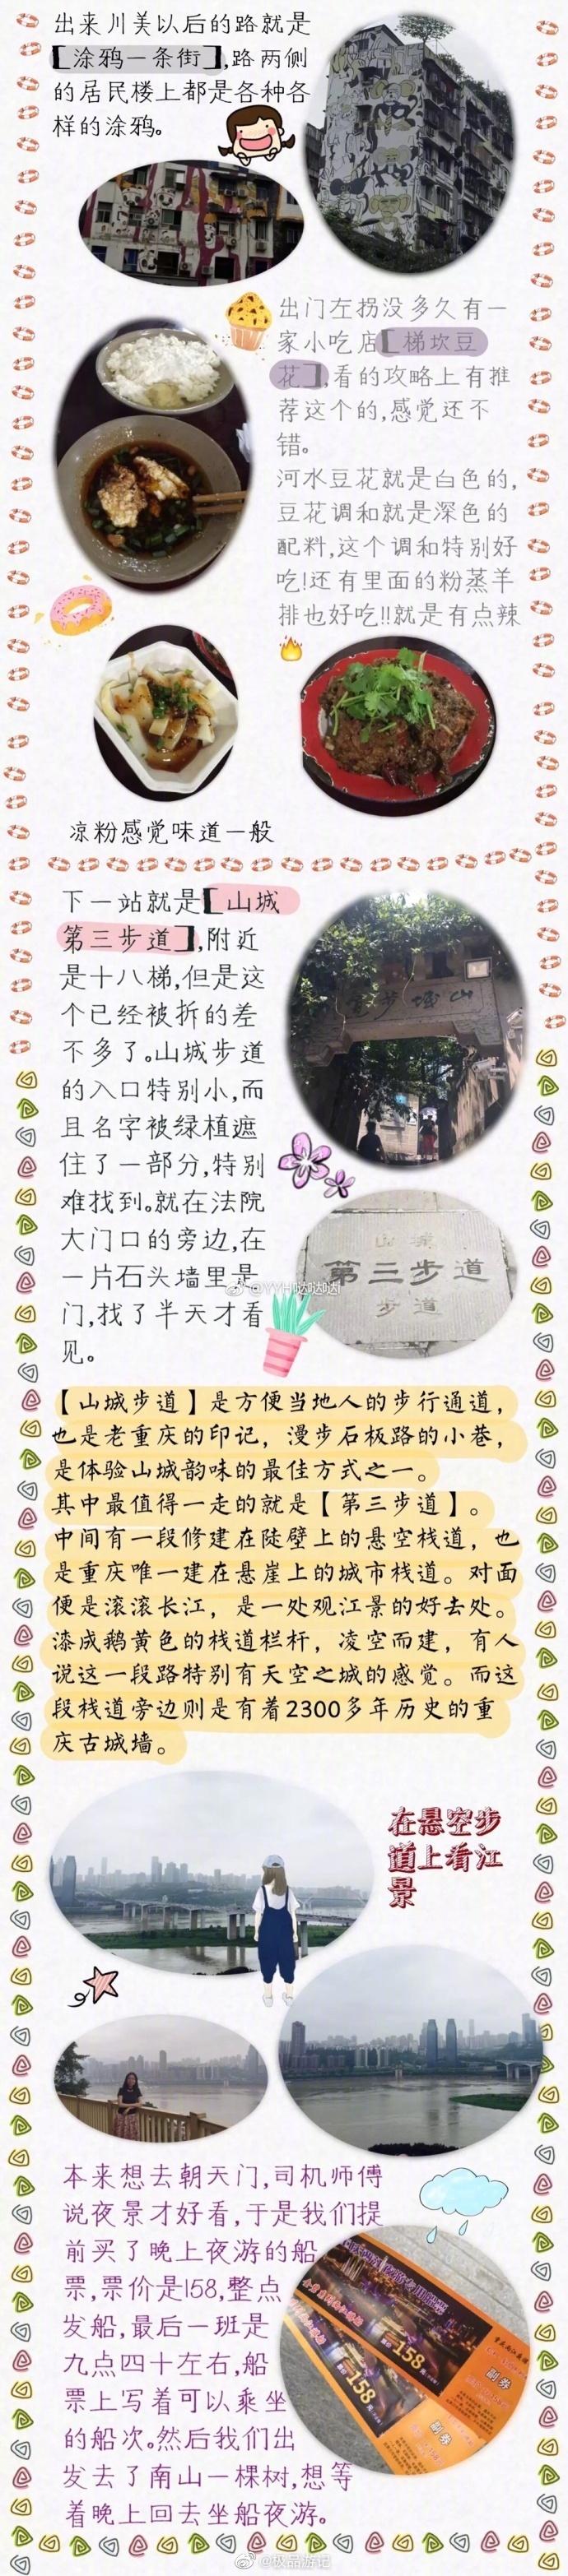 出来川美以后的路就是
【涂鸦一条街】,路两侧
的居民楼上都是各种各
样的涂鸦。
出门左拐没多久有一
家小吃店【梯坎豆
花】,看的攻略上有推
荐这个的,感觉还不
错。
河水豆花就是白色的,
豆花调和就是深色的
配料,这个调和特别好
吃!还有里面的粉蒸羊
排也好吃!!就是有点辣
凉粉感觉味道一般
下一站就是【山城
第三步道】,附近
是十八梯,但是这
个已经被拆的差
不多了。山城步道
的入口特别小,而
且名字被绿植遮
住了一部分,特别
难找到。就在法院
大门口的旁边,在
一片石头墙里是
门,找了半天才看
见。
山城步道
山城
第三步道
步道
@YYH哒哒哒l
【山城步道】是方便当地人的步行通道，
也是老重庆的印记，漫步石板路的小巷，
是体验山城韵味的最佳方式之一。
其中最值得一走的就是【第三步道】。
中间有一段修建在陡壁上的悬空栈道，也
是重庆唯一建在悬崖上的城市栈道。对面
便是滚滚长江，是一处观江景的好去处。
漆成鹅黄色的栈道栏杆，凌空而建，有人
说这一段路特别有天空之城的感觉。而这
段栈道旁边则是有着2300多年历史的重
庆古城墙。
在悬空步
道上看江
景
本来想去朝天门,司机师傅
说夜景才好看,于是我们提
前买了晚上夜游的船
票,票价是158,整点
发船,最后一班是
九点四十左右,船
票上写着可以乘坐
的船次。然后我们出
发去了南山一棵树,想等
着晚上回去坐船夜游。
158
副券
158
副券
@极品游记